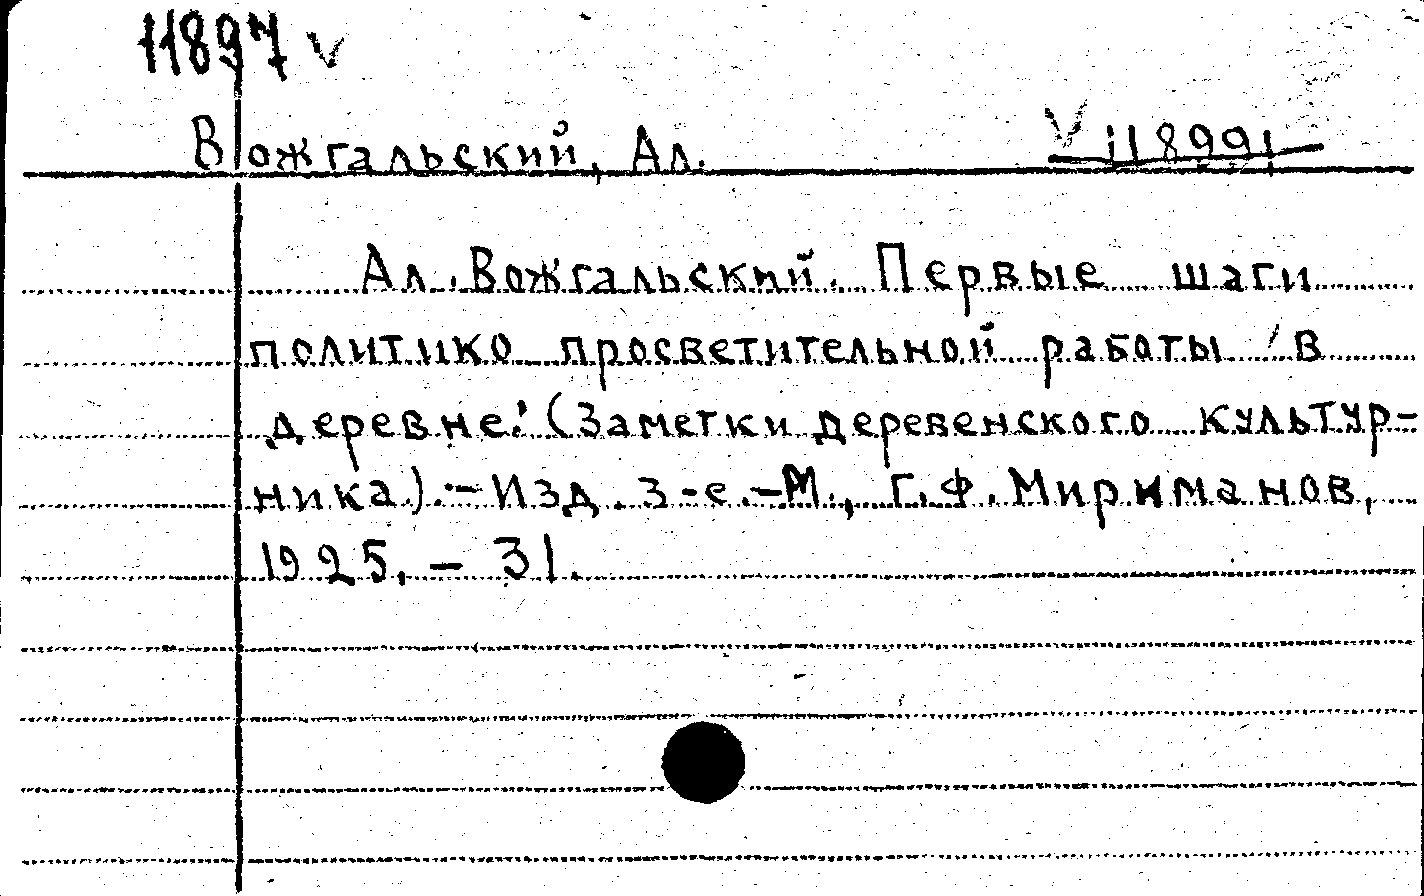 11897 v
Вожгальский, Ал. V 118991
Ал. Вожгальский. Первые шаги
политико просветительной работы в
деревне. (Заметки деревенского культур-
ника). - Изд. 3-е. - М., Г.Ф. Мириманов,
1925. - 31.